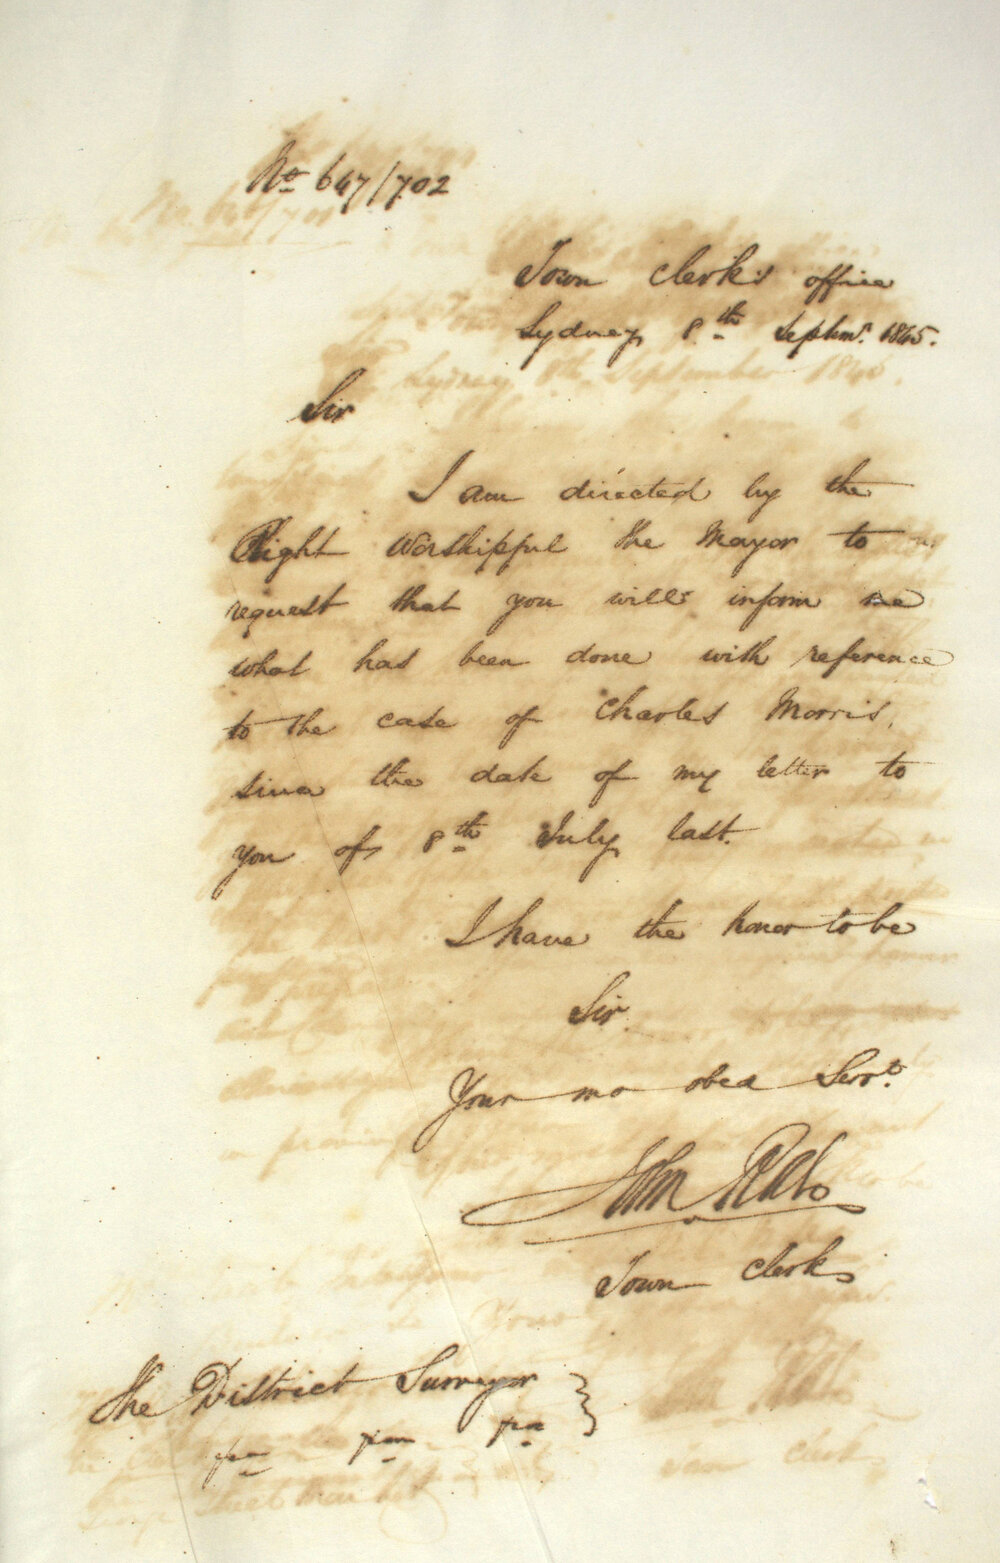 No 647/702
Town Clerk's office
Sydney 8th Septemr. 1845.
Sir
I am directed by the
Right Worshipful the Mayor to
request that you will inform me
what has been done with reference
to the case of Charles Morris,
since the date of my letter to
you of 8th July last.
I have the honor to be
Sir
Your mo obed Servt.
John Rae
Town Clerk
The District Surveyor